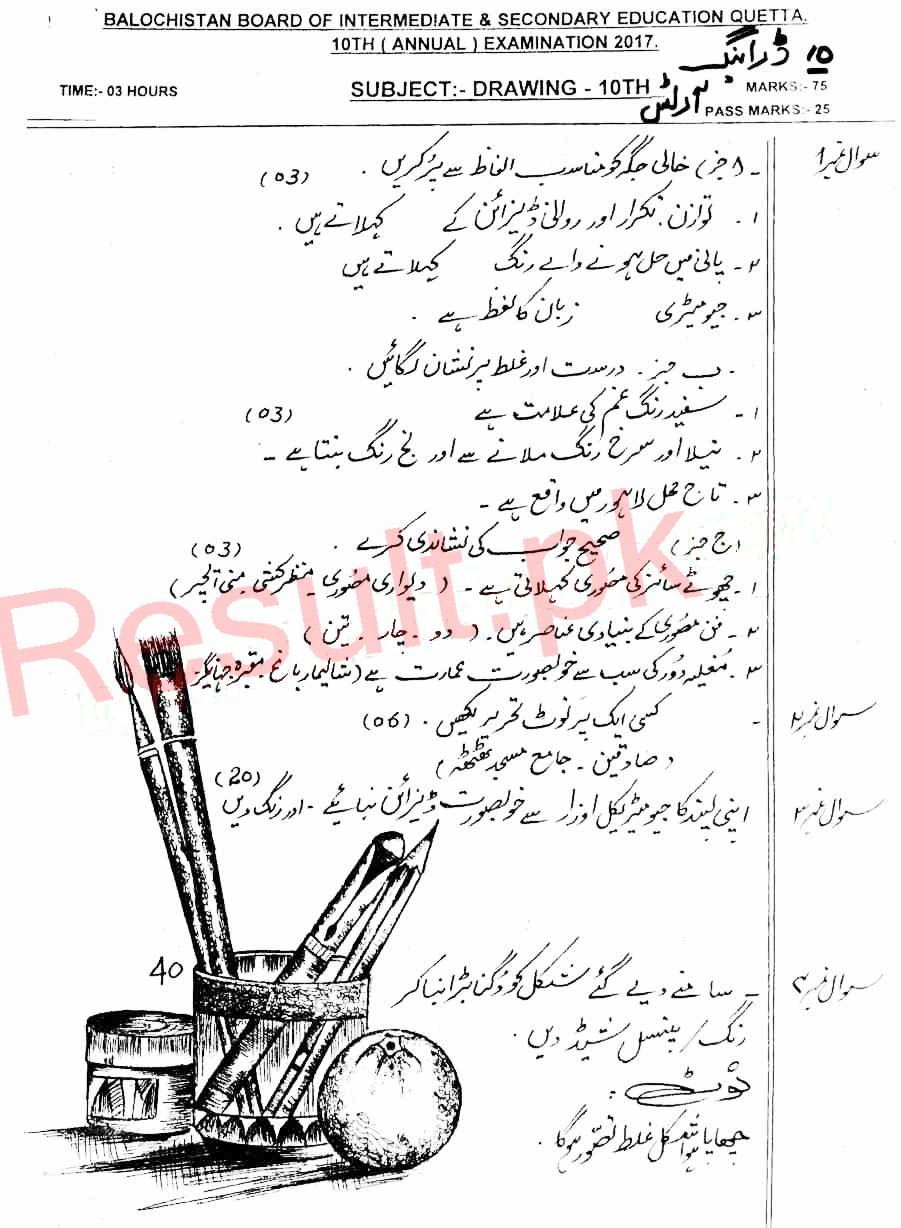 BALOCHISTAN BOARD OF INTERMEDIATE & SECONDARY EDUCATION QUETTA.
10TH ( ANNUAL ) EXAMINATION 2017.
10 ڈرائنگ
TIME:- 03 HOURS SUBJECT:- DRAWING - 10TH آرٹس MARKS:- 75
PASS MARKS:- 25
سوال نمبر ۱
۔ ا جز) خالی جگہ کو مناسب الفاظ سے پُر کریں . (03)
۱۔ توازن. تکرار اور روانی ڈیزائن کے کہلاتے ہیں .
۲۔ پانی میں حل ہونے والے رنگ کہلاتے ہیں
۳۔ جیومیٹری زبان کا لفظ ہے .
۔ ب جز . درست اور غلط پر نشان لگائیں .
۱۔ سفید رنگ غم کی علامت ہے (03)
۲. نیلا اور سرخ رنگ ملانے سے اورنج رنگ بنتا ہے ۔
۳. تاج محل لاہور میں واقع ہے ۔
(ج جز) صحیح جواب کی نشاندی کرے . (03)
۱۔ چھوٹے سائز کی مصوری کہلاتی ہے ۔ ( دیواری مصوری ۔ منظر کشی ۔ منی ایچر)
۲۔ فن مصوری کے بنیادی عناصر ہیں . ( دو . چار . تین )
۳۔ مغلیہ دور کی سب سے خوبصورت عمارت ہے (شالیمار باغ ، مقبرہ جہانگیر)
سوال نمبر ۲
۔ کسی ایک پر نوٹ تحریر لکھیں . (06)
( صادقین . جامع مسجد ٹھٹھہ )
سوال نمبر ۳
اپنی پسند کا جیومیٹریکل اوزار سے خوبصورت ڈیزائن بنائیے ۔ اور رنگ دیں (20)
سوال نمبر ۴
۔ سامنے دیے گئے شکل کو دُگنا بڑا بنا کر 40
رنگ / پینسل شیڈ دیں .
نوٹ :
چھاپا ہوا شکل غلط تصور ہوگا .
Result.pk